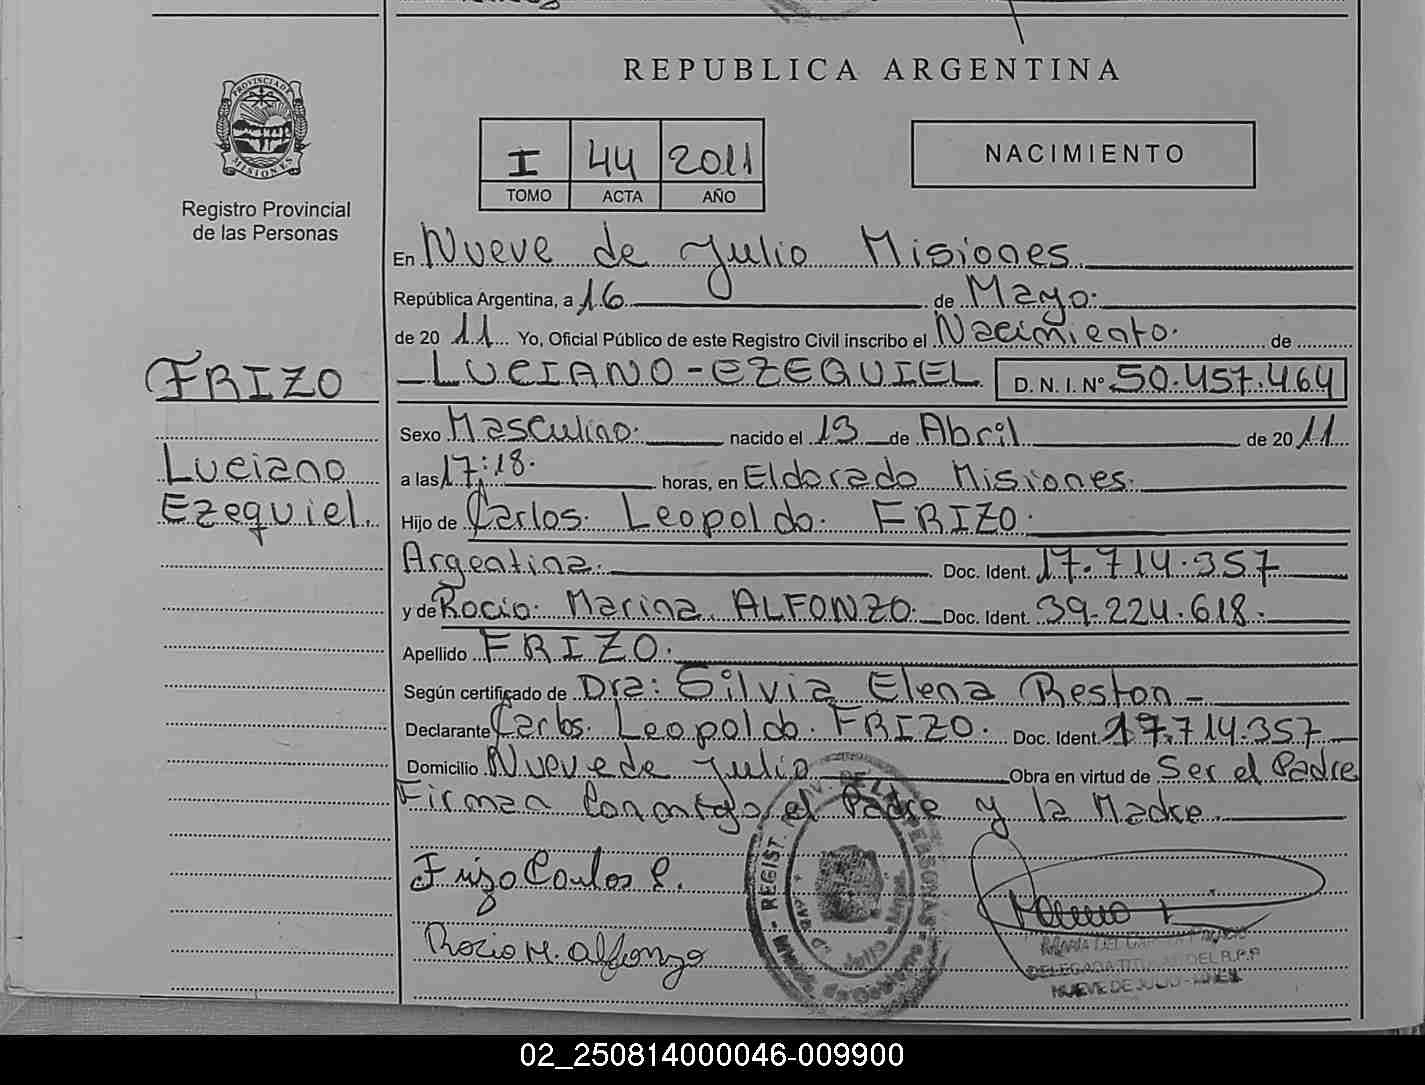 REPUBLICA ARGENTINA
PROVINCIA DE
MISIONES
Registro Provincial
de las Personas
I 44 2011
TOMO ACTA AÑO
NACIMIENTO
En Nueve de Julio Misiones
República Argentina, a 16 de Mayo.
de 20 11 Yo, Oficial Público de este Registro Civil inscribo el Nacimiento. de
FRIZO
LUCIANO-EZEQUIEL D. N. I. Nº 50.457.464
Sexo Masculino. nacido el 13 de Abril de 20 11
Luciano
Ezequiel.
a las 17:18. horas, en Eldorado Misiones.
Hijo de Carlos. Leopoldo. FRIZO.
Argentina. Doc. Ident. 17.714.357
y de Rocio. Marina. ALFONZO. Doc. Ident. 39.224.618.
Apellido FRIZO.
Según certificado de Dra: Silvia Elena Reston
Declarante Carlos. Leopoldo. FRIZO. Doc. Ident. 17.714.357
Domicilio Nueve de Julio Obra en virtud de Ser el Padre
Firman Conmigo el Padre y la Madre.
Frizo Carlos L.
Rocio M. Alfonzo
MARIA DEL
DELEGADA TITULAR DEL R.P.P
NUEVE DE JULIO
02_250814000046-009900